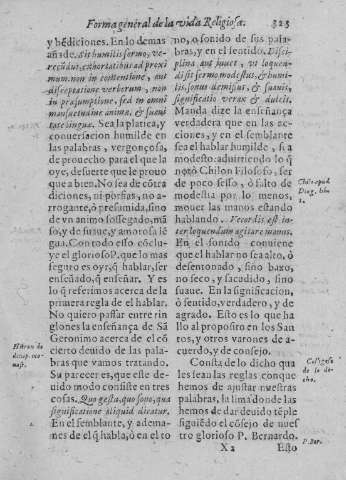 Forma general de la vida Religiosa. 323
y bēdiciones. En lo demas
añade. Sit humilis sermo, ve-
recūdus, exhortatibus ad proxi
mum. non in contentione, aut
disceptatione verborum, non
in præsumptione, sed in omni
mansuetudine animæ, & suaui
tate linguæ. Sea la platica, y
conuersacion humilde en
las palabras, vergonçosa,
de prouecho para el que la
oye, desuerte que le prouo
que a bien. No sea de cōtra
diciones, ni porfias, no a-
rrogante, ò presumida, sino
de vn animo sossegado, mã
so, y de suaue, y amorosa lē
gua. Con todo esso cōclu-
ye el glorioso P. que lo mas
seguro es oyr, q̃ hablar, ser
enseñado, q̃ enseñar. Y es
lo q̃ referimos acerca de la
primera regla de el hablar.
No quiero passar entre rin
glones la enseñança de Sã
Geronimo acerca de el cō
cierto deuido de las pala-
bras que vamos tratando.
Su parecer es, que este de-
uido modo consiste en tres
cosas. Quo gestu, quo sono, qua
significatione aliquid dicatur.
En el semblante, y ademã-
nes de el q̃ habla, ò en el to
no, o sonido de sus pala-
bras, y en el sentido. Disci-
plina aut iuuet, vt loquen-
di sit sermo, modestus, & humi-
lis, sonus demissus, & suauis,
significatio verax & dulcis.
Manda dize la enseñança
verdadera que en las ac-
ciones, y en el semblante
sea el hablar humilde, si a
modesto: aduirtiendo lo q̃
notò Chilon Filosofo, ser
de poco sesso, ò falto de
modestia por lo menos,
mouer las manos estando
hablando. Vecordis est, in-
ter loquendum agitare manus.
En el sonido conuiene
que el hablar no sea alto, ò
desentonado, sino baxo,
no seco, y sacudido, sino
suaue. En la significacion,
ò sentido, verdadero, y de
agrado. Esto es lo que ha
llo al proposito en los San
tos, y otros varones de a-
cuerdo, y de consejo.
Consta de lo dicho qua
les sean las reglas conque
hemos de ajustar nuestras
palabras, la lima donde las
hemos de dar deuido tēple
siguiēdo el cōsejo de nues
tro glorioso P. Bernardo.
X 2 Esto
Chilo apud
Hieron de
Colligese
de lo di-
cho.
P. Ber.